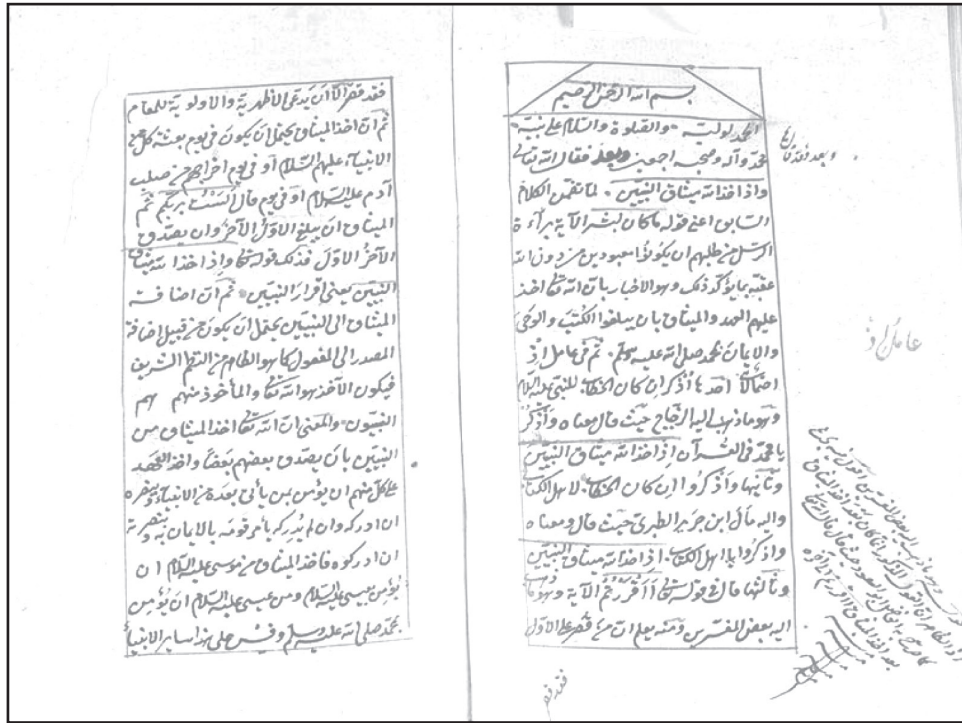 بسم الله الرحمن الرحيم
الحمد لوليه والصلوة والسلام على نبيه
محمد وآله وصحبه اجمعين وبعد فقال الله تعالى
واذ اخذ الله ميثاق النبيين لما تضمن الكلام
السابق اعنى قوله ما كان لبشر الآية براءة
الرسل من طلبهم ان يكونوا معبودين من دون الله
عقبه بما يؤكد ذلك وهو الاخبار بان الله تعالى اخذ
عليهم العهد والميثاق بان يبلغوا الكتب والوحى
والايمان بمحمد صلى الله عليه وسلم ثم فى عامل اذ
احتمالات احدها اذكر ان كان الخطاب للنبى عليه السلام
وهو ما ذهب اليه الزجاج حيث قال معناه واذكر
يا محمد فى القرآن اذ اخذ الله ميثاق النبيين
وثانيها واذكروا ان كان الخطاب لاهل الكتاب
واليه مال ابن جرير الطبرى حيث قال ومعناه
واذكروا يا اهل الكتاب اذ اخذ الله ميثاق النبيين
وثالثها قال فى قوله تعالى أأقررتم الآية وذهب
اليه بعض المفسرين ومنه يعلم ان من قصر على الاول
فقد قصر
عامل اذ
فقد قصر الا ان يدعى الاظهرية والاولوية للمقام
ثم ان اخذ الميثاق يحتمل ان يكون فى يوم بعثة كل من
الانبياء عليهم السلام او فى يوم اخراجهم من صلب
آدم عليه السلام او فى يوم قال ألست بربكم ثم
الميثاق ان يبلغ الاول الآخر وان يصدق
الآخر الاول فذلك قوله تعالى واذ اخذ الله ميثاق
النبيين يعنى اقرار النبيين ثم ان اضافة
الميثاق الى النبيين يحتمل ان يكون من قبيل اضافة
المصدر الى المفعول كما هو الظاهر من النظم الشريف
فيكون الآخذ هو الله تعالى والمأخوذ منهم هم
النبيون والمعنى ان الله تعالى اخذ الميثاق من
النبيين بان يصدق بعضهم بعضا واخذ العهد
على كل منهم ان يؤمن بمن يأتى بعده من الانبياء وينصره
ان ادركه وان لم يدركه يأمر قومه بالايمان به وبنصرته
ان ادركوه فاخذ الميثاق من موسى عليه السلام ان
يؤمن بعيسى عليه السلام ومن عيسى عليه السلام ان يؤمن
بمحمد صلى الله عليه وسلم وقس على هذا سائر الانبياء